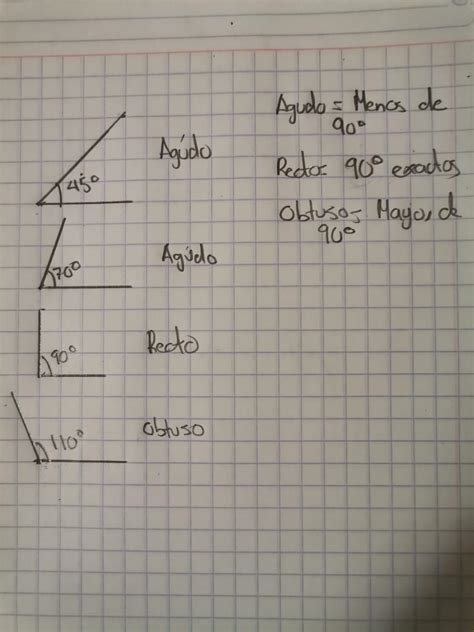 Agudo = Menos de
90°
Recto= 90° exactos
Obtuso= Mayor de
90°
45° Agúdo
70° Agúdo
90° Recto
110° Obtuso